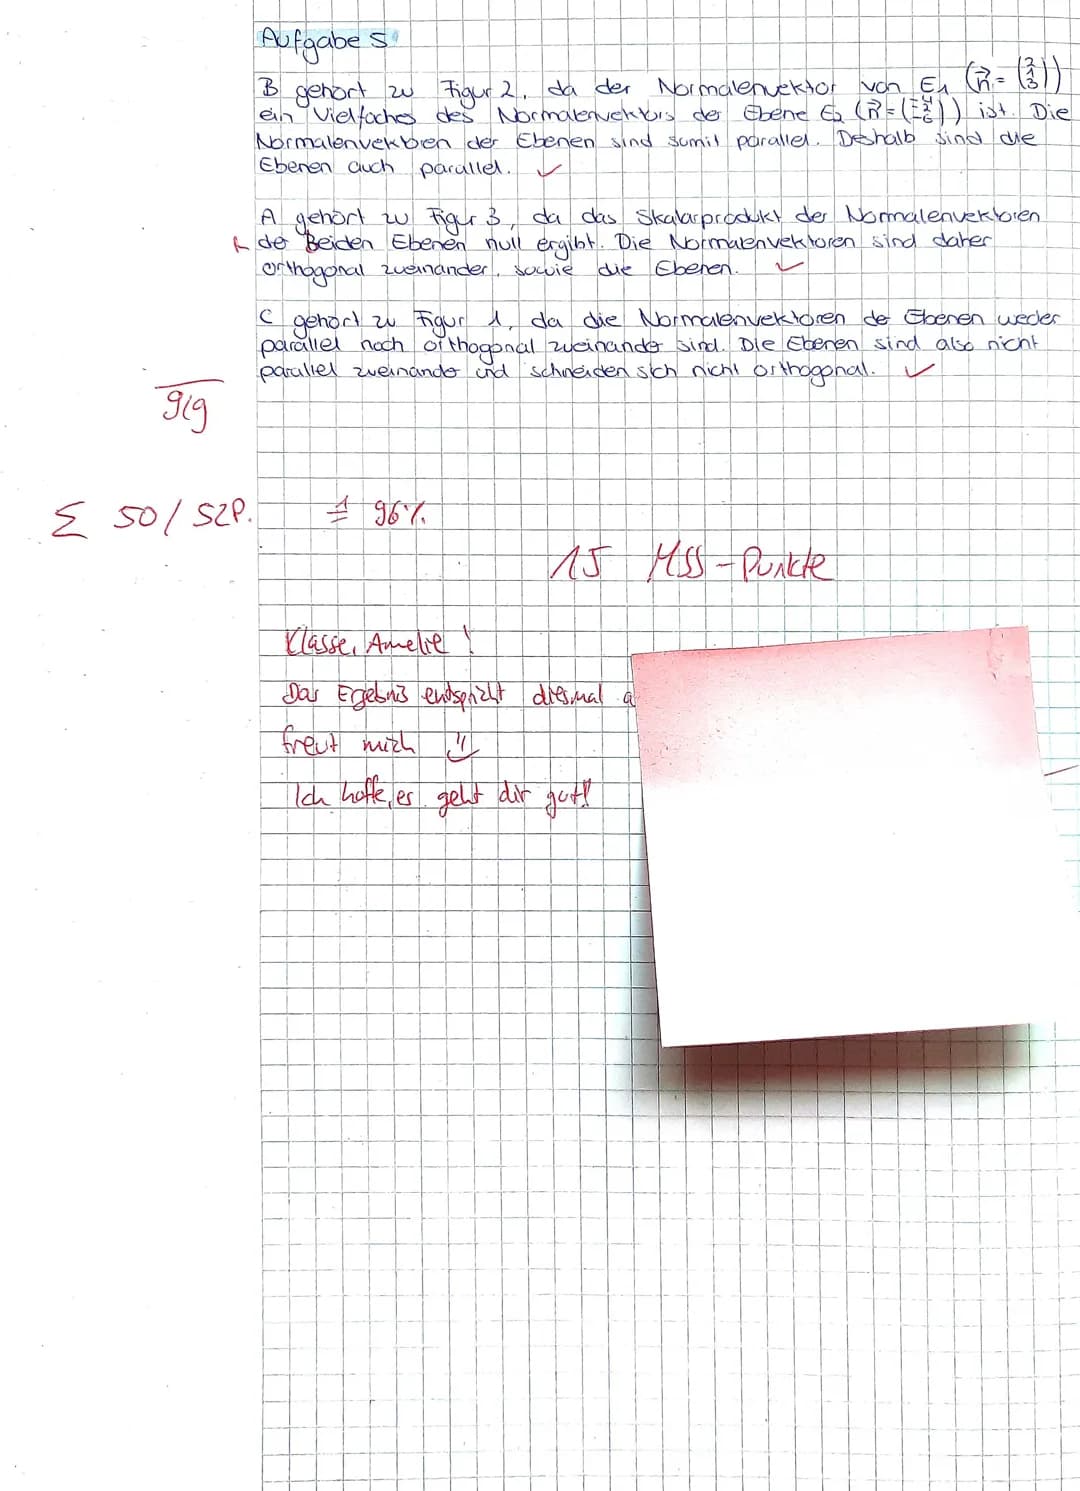 Aufgabe 5
B gehört zu Figur 2, da der Normalenvektor von E₁ (n⃗ = (2 1 3))
ein Vielfaches des Normalenvektors der Ebene E₂ (n⃗ = (-4 -2 -6)) ist. Die
Normalenvektoren der Ebenen sind somit parallel. Deshalb sind die
Ebenen auch parallel. ✓
A gehört zu Figur 3, da das Skalarprodukt der Normalenvektoren
der Beiden Ebenen null ergibt. Die Normalenvektoren sind daher
orthogonal zueinander, sowie die Ebenen. ✓
C gehört zu Figur 1, da die Normalenvektoren der Ebenen weder
parallel noch orthogonal zueinander sind. Die Ebenen sind also nicht
parallel zueinander und schneiden sich nicht orthogonal. ✓
9/9
Σ 50/52P. ≙ 96%
15 MSS-Punkte
Klasse, Amelie!
Das Ergebnis entspricht diesmal
freut mich
Ich hoffe, es geht dir gut!